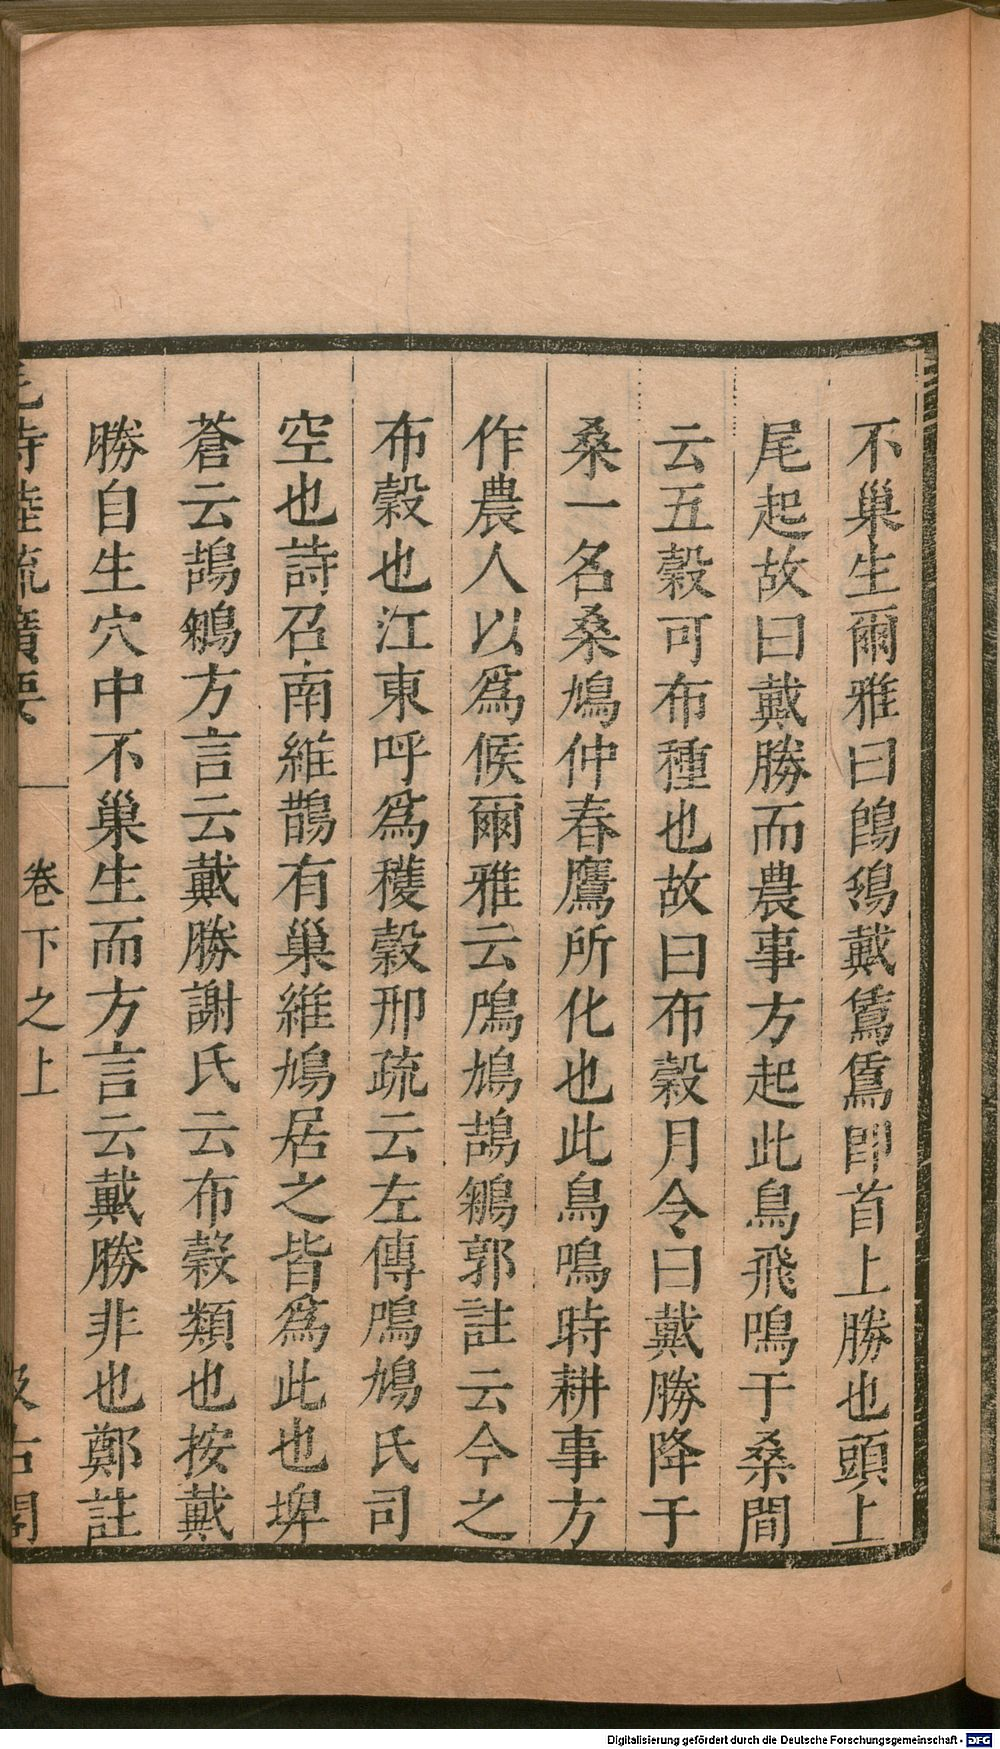 不巢生爾雅曰鵖鴔戴鵀鵀即首上勝也頭上
尾起故曰戴勝而農事方起此鳥飛鳴于桑間
云五穀可布種也故曰布穀月令曰戴勝降于
桑一名桑鳩仲春鷹所化也此鳥鳴時耕事方
作農人以爲候爾雅云鳲鳩鴶鵴郭註云今之
布穀也江東呼爲穫穀邢疏云左傳鳲鳩氏司
空也詩召南維鵲有巢維鳩居之皆爲此也埤
蒼云鴶鵴方言云戴勝謝氏云布穀類也按戴
勝自生穴中不巢生而方言云戴勝非也鄭註
毛詩陸疏廣要 卷下之上 汲古閣
Digitalisierung gefördert durch die Deutsche Forschungsgemeinschaft - DFG